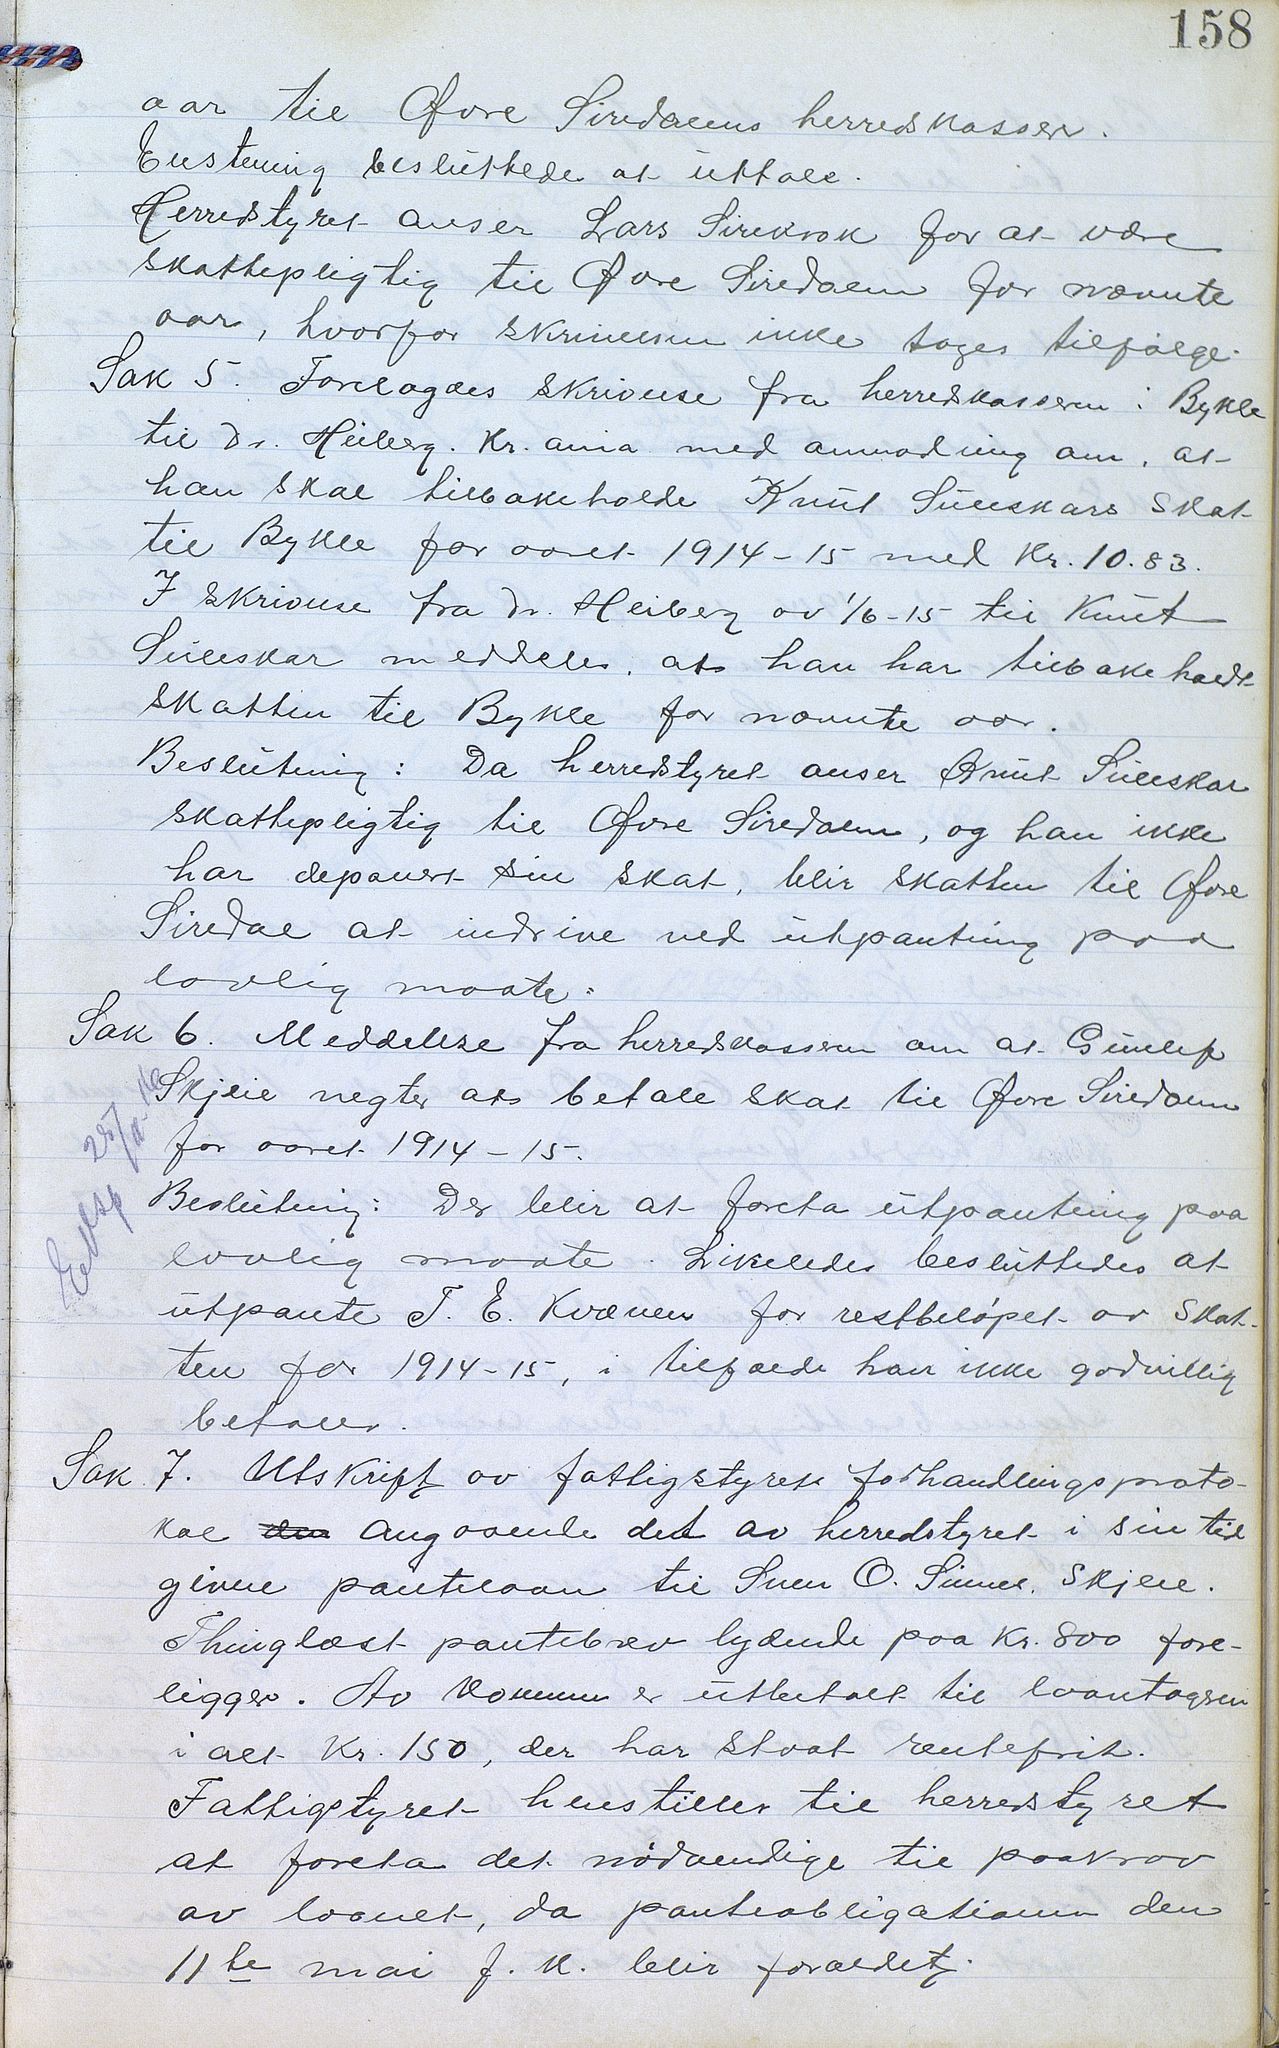 158
aar til Øvre Siredalens herredskasserer.
Enstemmig besluttedes at uttale.
Herredstyret anser Lars Sirekrok for at være
skattepligtig til Øvre Siredalen for nævnte
aar, hvorfor skrivelsen ikke tages tilfølge.
Sak 5. Forelagdes skrivelse fra herredskasseren i Bykle
til Dr. Heiberg. Kr.ania med anmodning om, at
han skal tilbakeholde Knut Suleskars skat
til Bykle for aaret 1914-15 med Kr. 10.83.
I skrivelse fra Dr. Heiberg av 1/6-15 til Knut
Suleskar meddeles, at han har tilbakeholdt
skatten til Bykle for nævnte aar.
Beslutning: Da herredstyret anser Knut Suleskar
skattepligtig til Øvre Siredalen, og han ikke
har deponert sin skat, blir skatten til Øvre
Siredal at indrive ved utpantning paa
lovlig maate.
Sak 6. Meddelelse fra herredskasseren om at Gunlef
Skjeie negter at betale skat til Øvre Siredalen
for aaret 1914-15.
Beslutning: Der blir at foreta utpantning paa
lovlig maate. Likeledes besluttedes at
utpante T. E. Kvæven for restbeløpet av skat-
ten for 1914-15, i tilfælde han ikke godvillig
betaler.
Sak 7. Utskrift av fattigstyrets forhandlingsproto-
kol den angaaende det av herredstyret i sin tid
givne pantelaan til Sven O. Skjeie.
Thinglæst pantebrev lydende paa Kr. 800 fore-
ligger. Av kommunen er utbetalt til laantageren
i alt Kr. 150, der har staat rentefrit.
Fattigstyret henstiller til herredstyret
at foreta det nødvendige til paakrav
av laanet, da panteobligationen den
11te mai f. k. blir forældet.